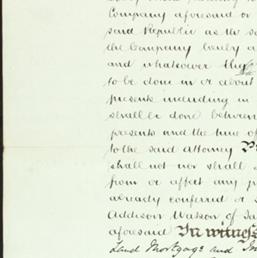 Company aforesaid or
said Republic as the
the Company hereby
and whatsoever they
to be done in or about
presents including in
shall be done between
presents and the time of
to the said Attorney
shall not nor shall
from or affect any
already conferred or
Addison Watson of
aforesaid In witness
Land Mortgage and